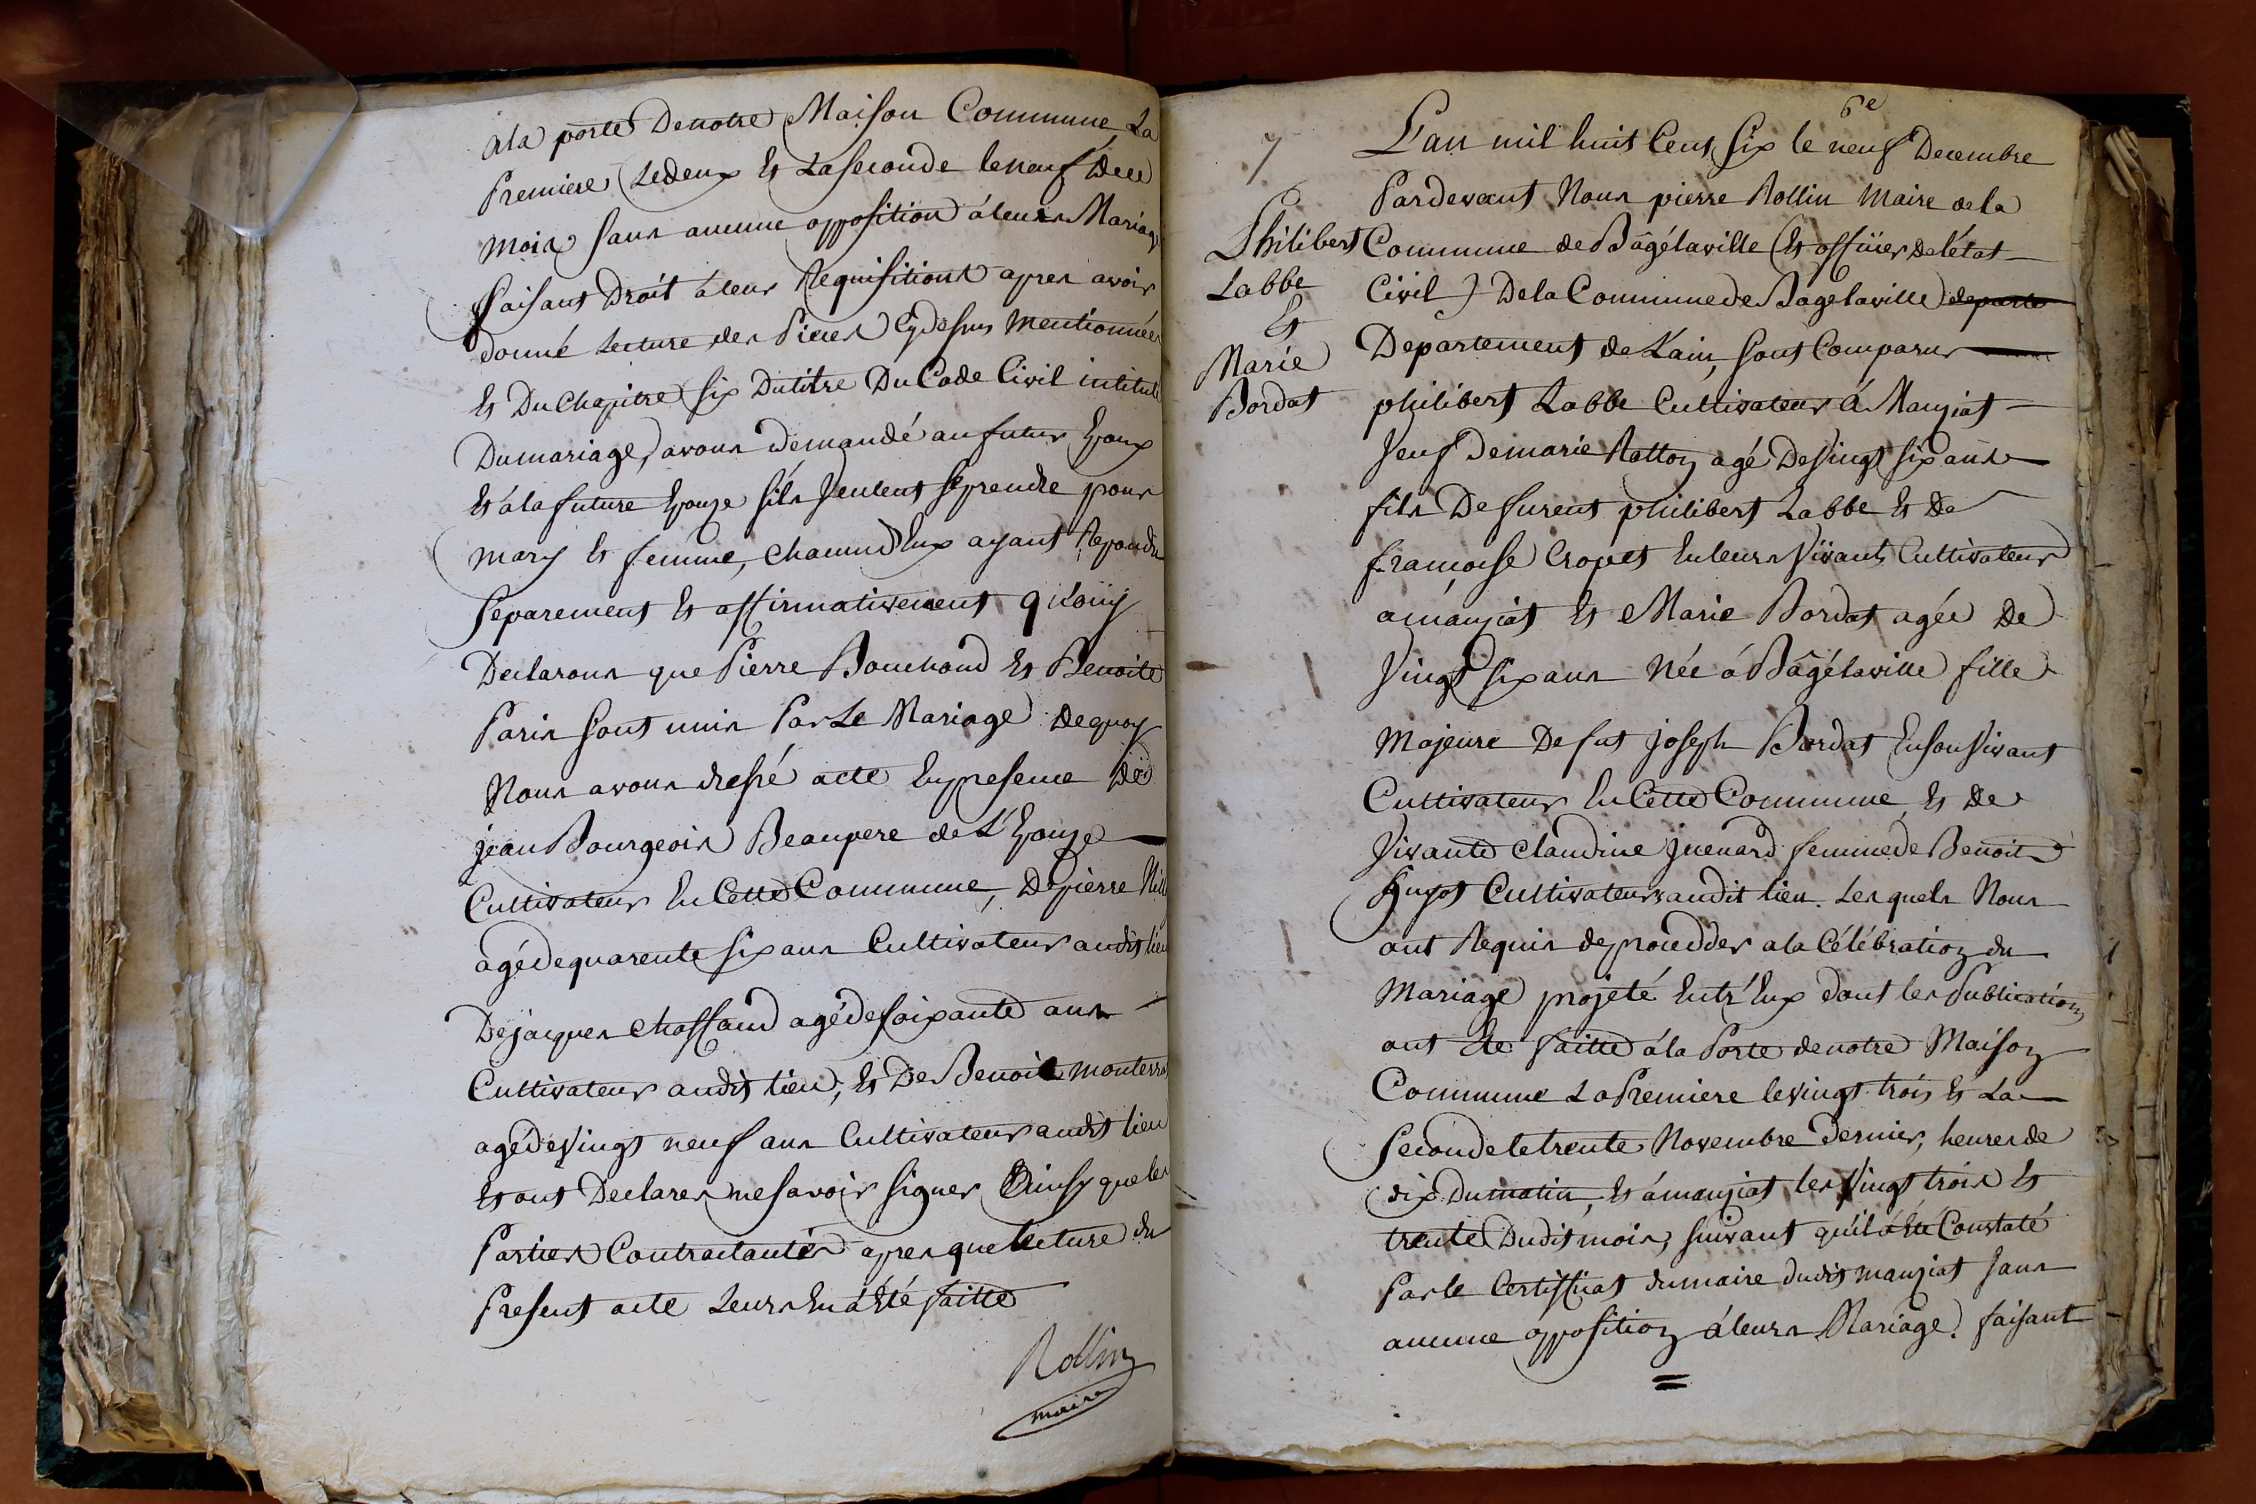 a la porte de notre Maison Commune, La
Premiere Le deux Et La seconde le neuf de ce
mois sans aucune opposition á leurs Mariage
faisant Droit á leur Requisitions apres avoir
donné Lecture des Pieces Cydessus mentionnées
Et Du Chapitre six Du titre Du Code Civil intitulé
Du mariage, avons demandé au futur Epoux
Et á la future Epouze sils Veulent se prendre pour
mary Et femme, chacun d'Eux ayant Repondu
Separement Et affirmativement q'
Declarons que Pierre Bouchoud Et Benoite
Paris sont unis Par Le Mariage de quoy
Nous avons dressé acte En presence De
jean Bourgeois Beaupere de L'Epouze
Cultivateur En Cette Commune, De pierre
agé de quarente six ans Cultivateur audit lieu
De jacques Choffaud agé de soixante ans
Cultivateur audit lieu, Et De Benoit
agé de Vingt neuf ans Cultivateur audit lieu
Et ont Declarer ne savoir signer Ainsy que les
Parties Contractantés apres que lecture du
Present acte Leurs En á Eté faitte
Rollin
maire
7
6e
L'an mil huit Cent six le neuf Decembre
Pardevant Nous pierre Rollin Maire de la
Philibert
Labbe
Et
Marie
Bordat
Commune de Bâgélaville Et officier de l'état
Civil De la Commune de Bâgelaville departe
Departement de L'ain, sont Comparus
philibert Labbe Cultivateur á Manziat
Veuf De marie Ratton agé De Vingt six ans
fils De furent philibert Labbe Et De
françoise Cropet En leurs Vivant Cultivateur
a manziat Et Marie Bordat agée De
Vingt six ans Née á Bâgélaville fille
Majeure De fut joseph Bordat En son Vivant
Cultivateur En Cette Commune Et De
Vivante Claudine juenard femme de Benoit
Guyot Cultivateurs audit lieu. Lesquels Nous
ont Requis de proceder a la Célébration du
Mariage projeté Entr'Eux dont les Publications
ont Ete faitte á la Porte de notre Maison
Commune La Premiere le Vingt trois Et La
Seconde le trente Novembre dernier, heures de
dix Du matin, Et á manziat les Vingt trois Et
trente Dudit mois, suivant qu'il á Eté Constaté
Par le Certifficat du maire dudit manziat sans
aucune opposition á leurs Mariage. faisant